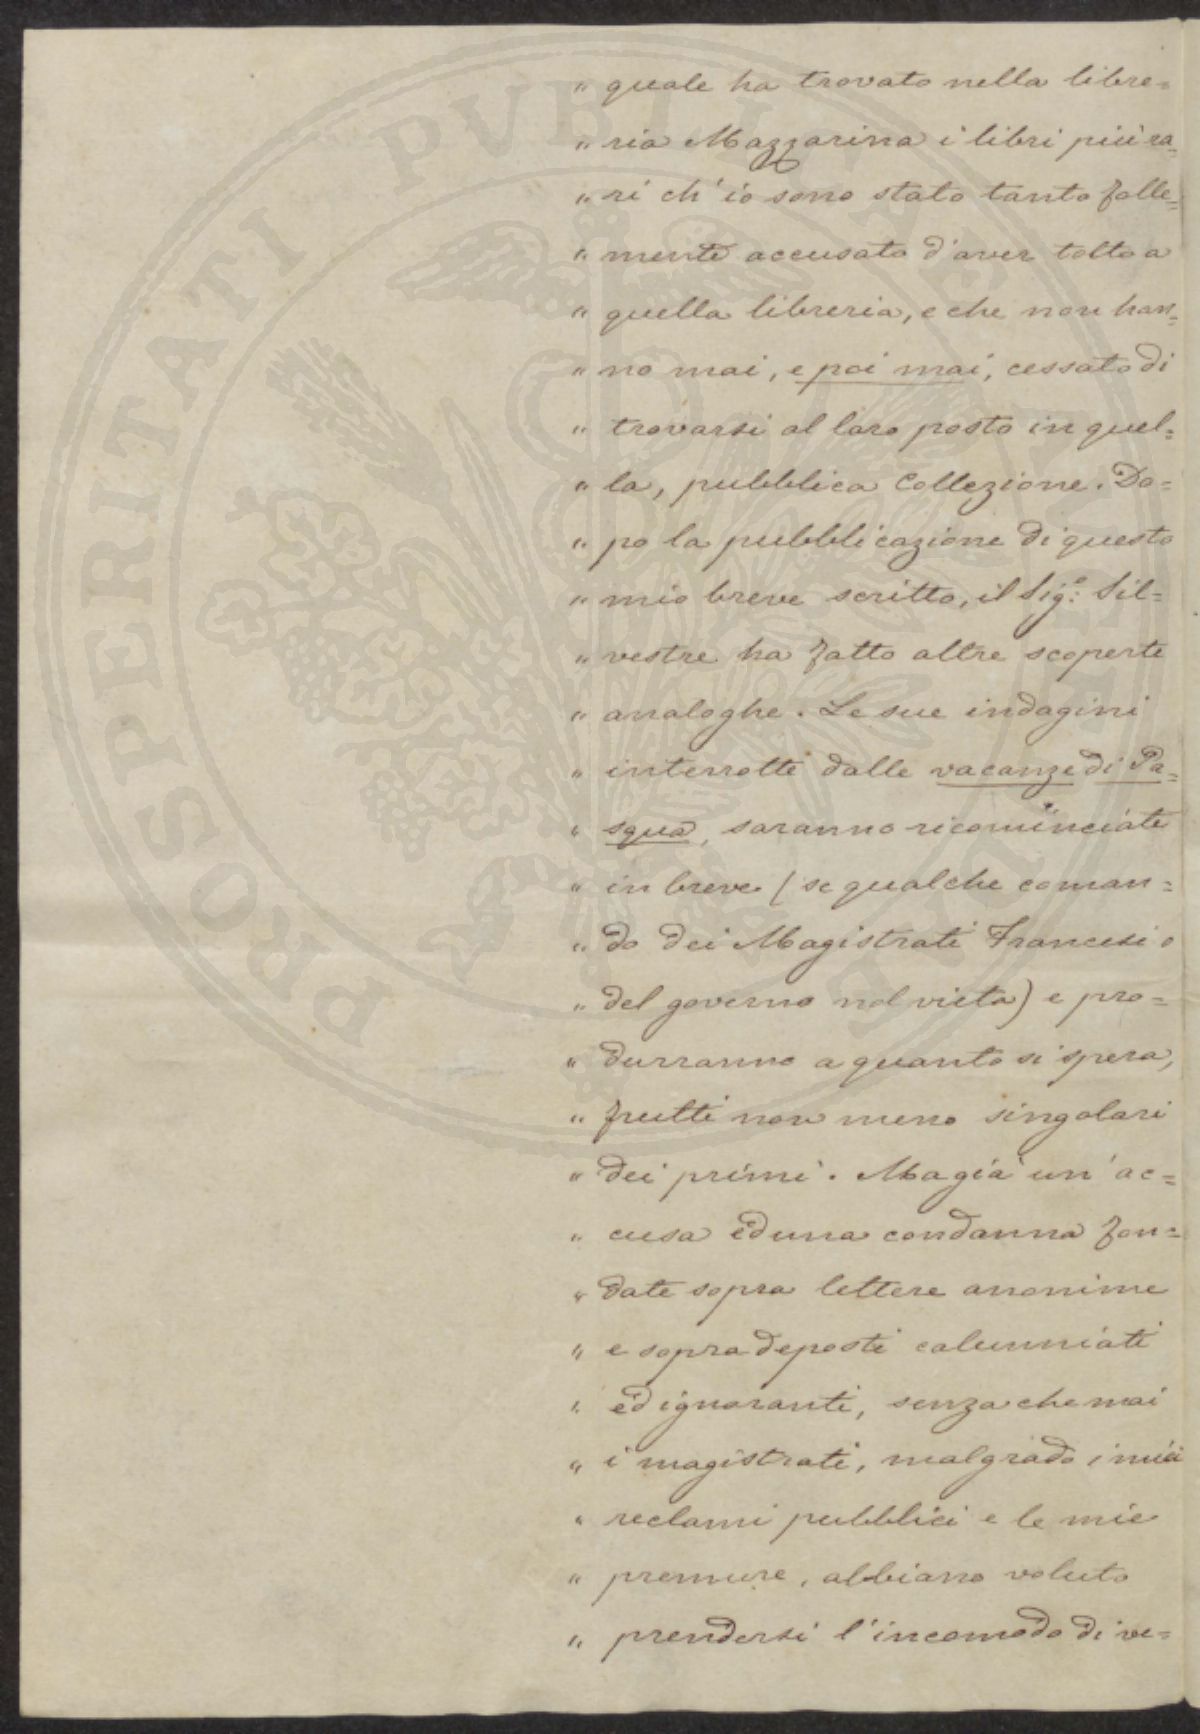 " quale ha trovato nella libre=
" ria Mazzarina i libri più ra=
" ri ch'io sono stato tanto folle=
" mente accusato d'aver tolto a
" quella libreria, e che non han=
" no mai, e poi mai, cessato di
" trovarsi al loro posto in quel=
" la, pubblica Collezione. Do=
" po la pubblicazione di questo
" mio breve scritto, il Sig.e Sil=
" vestre ha fatto altre scoperte
" analoghe. Le sue indagini
" interrotte dalle vacanze di Pa=
" squa, saranno ricominciate
" in breve (se qualche coman=
" do dei Magistrati Francesi o
" del governo nol vieta) e pro=
" durranno a quanto si spera,
" frutti non meno singolari
" dei primi. Ma già un'ac=
" cusa ed una condanna fon=
" date sopra lettere anonime
" e sopra deposti calunniati
" ed ignoranti, senza che mai
" i magistrati, malgrado i miei
" reclami pubblici e le mie
" premure, abbiano voluto
" prendersi l'incomodo di ve=
PROSPERITATI PVBLICAE